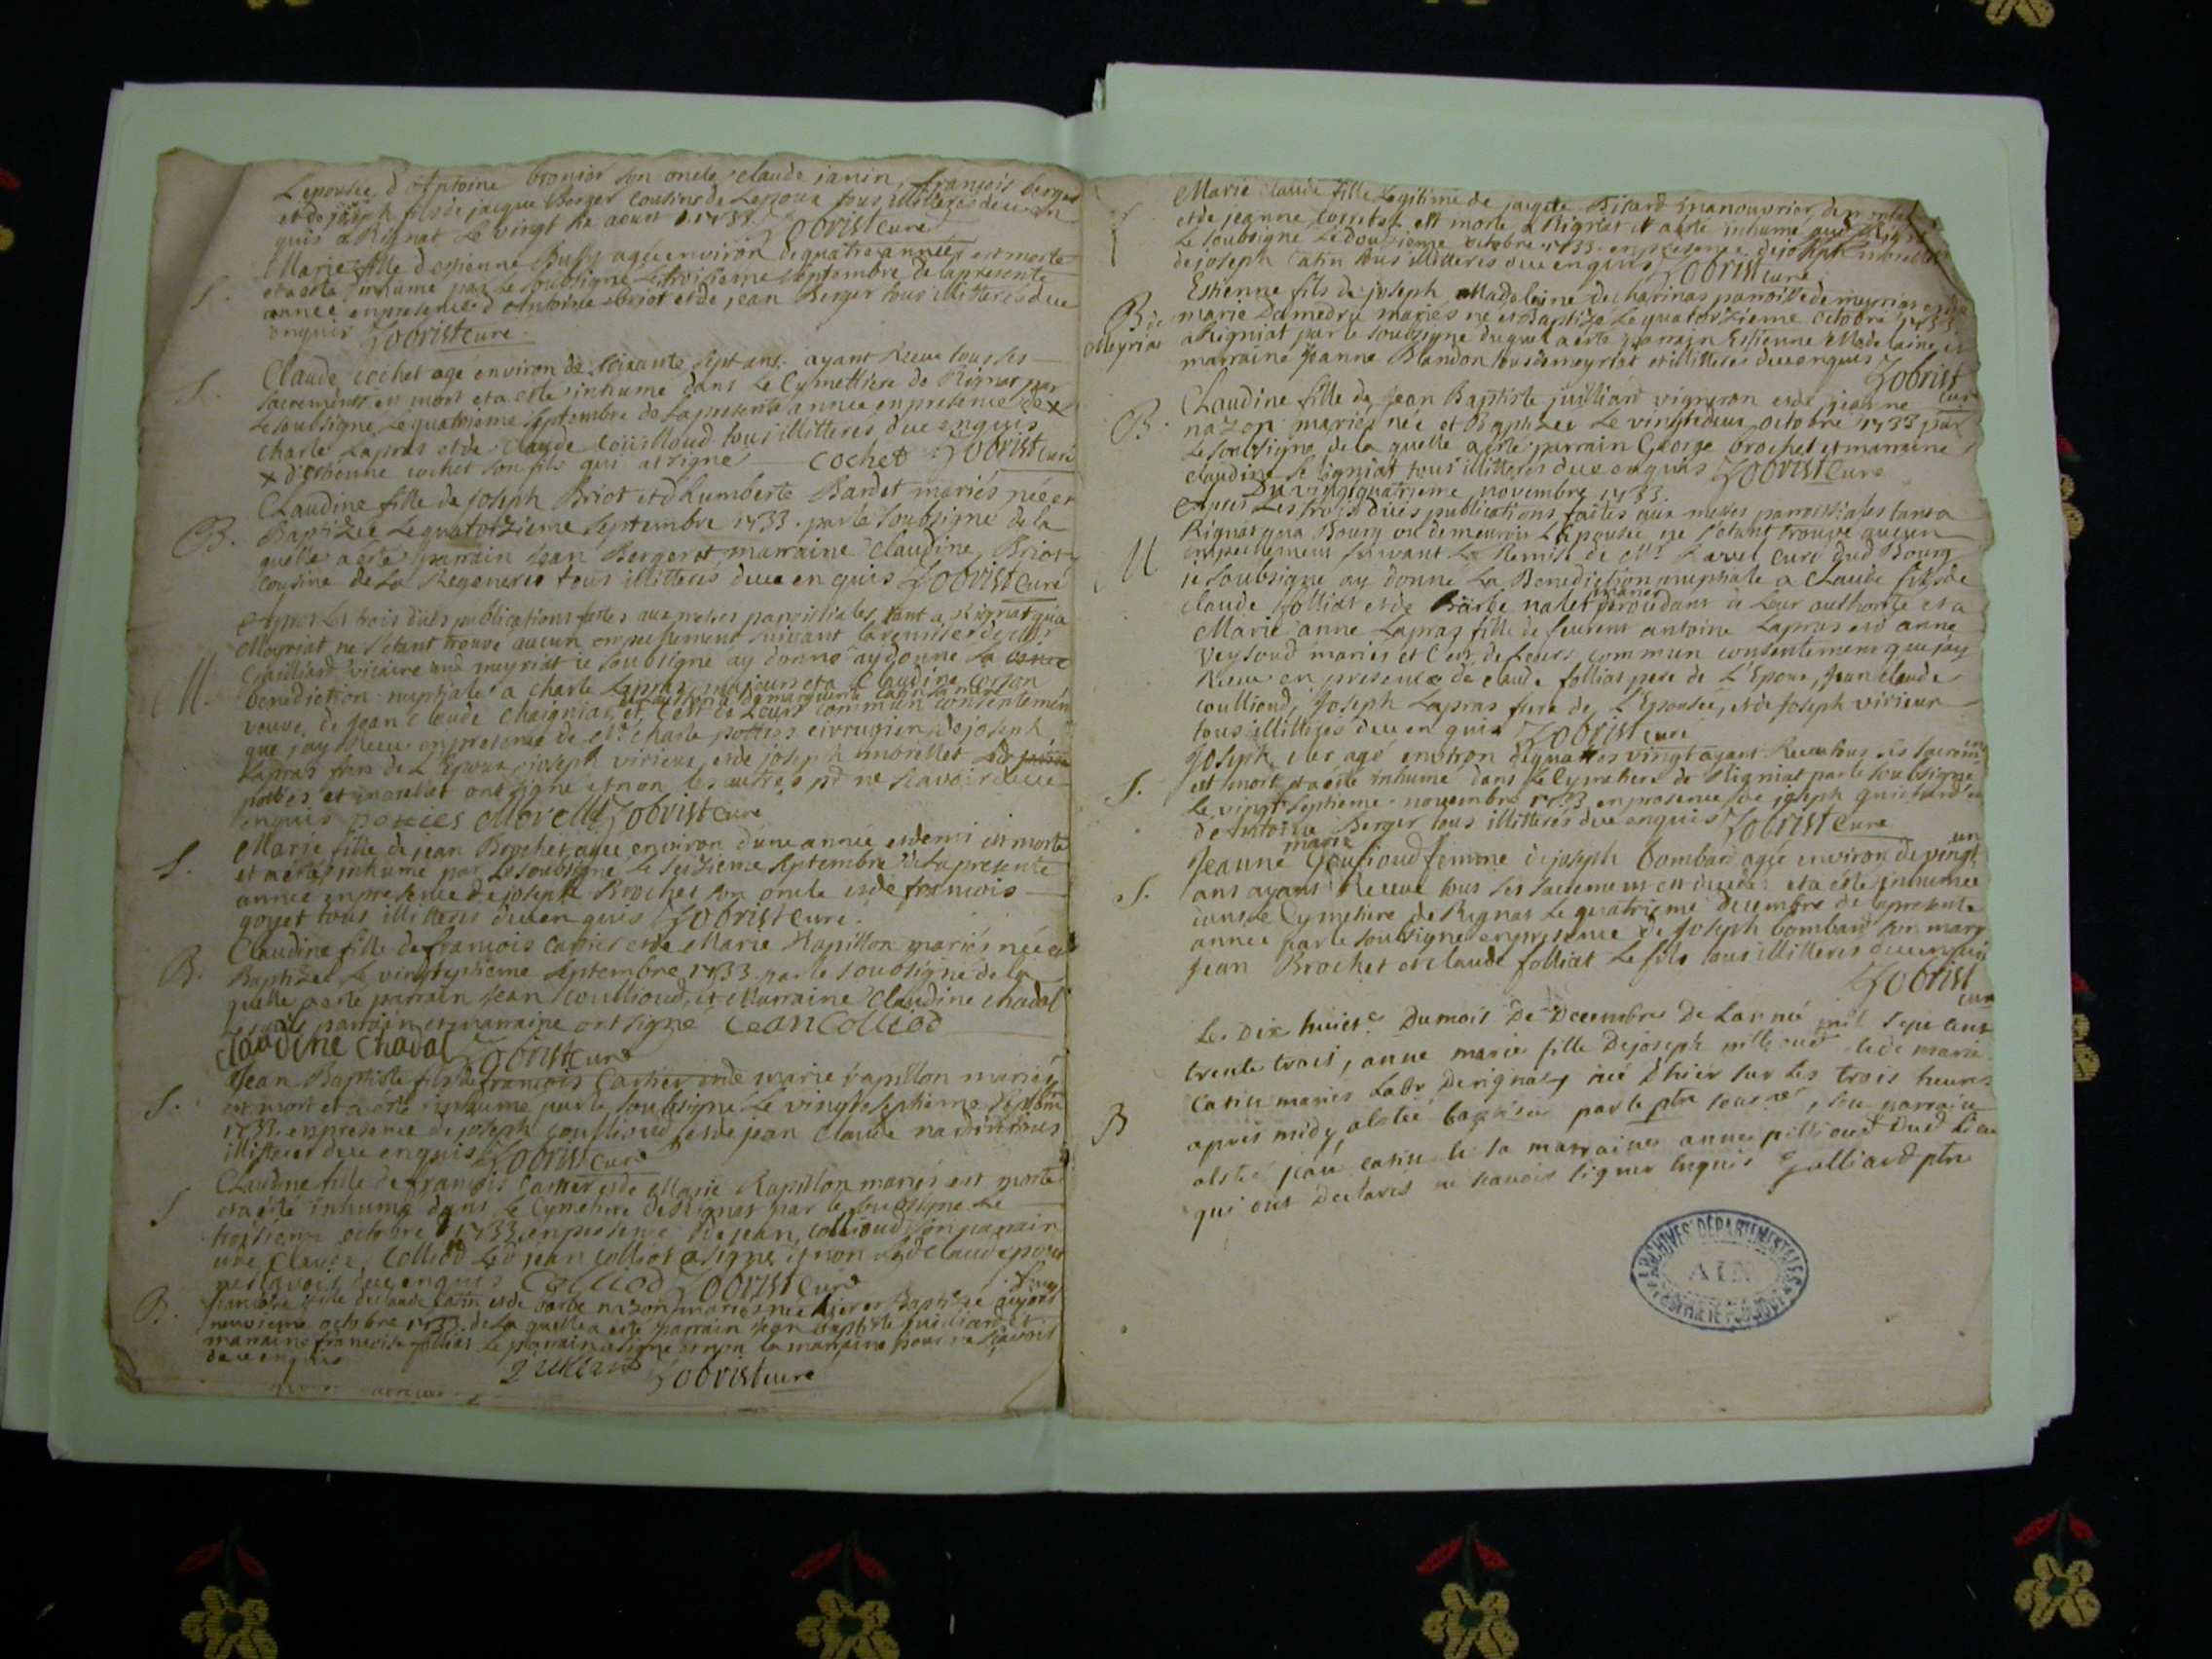 L epousée d Antoine bronior son oncle claude janin, francois berger
et de joseph fils de jacque Berger cousins de Lepoux tous illitteres deue en
quis a Rignat Le vingt aoust 1733. Zobrist curé
Marie fille d estienne Bussy agée environ de quatre années est morte
et a esté inhumé par Le soubsigné Le troisieme septembre de la presente
S. année en presence d Antoine Briot et de jean Berger tous illitteres due
enquis Zobrist curé
Claude cochet age environ de soixante sept ans. ayant Receu tous ses
S. sacrements est mort et a esté inhumé dans Le Cymettiere de Rignat par
Le soubsigné Le quatrieme septembre de La presente annee en presence de x
charle Lapras et de Claude Couilloud tous illitteres due enquis
x d'Estienne cochet son fils qui a signé cochet Zobrist curé
Claudine fille de joseph Briot et d humberte Bardet mariés née et
B. Baptizée Le quatorzieme septembre 1733. par le soubsigné de la
quelle a esté parrain jean Berger et marraine Claudine Briot
cousine de La Regeneree tous illitteres deue en quis Zobrist curé
apres Les trois dues publications faites aux messes parroissiales tant a Rignat qua
Meyriat ne s'etant trouvé aucun empeschement suivant la remise de Mr
vicaire aud meyriat ie soubsigné ay donné ay donne La
M. benediction nuptiale a charle Lapras majeur et a Claudine
de marguerite catin sa mere
veuve de jean Claude Chaignias et c'est de Leurs commun consentement
que jay Receu en presence de Mr charle pottes cirrugien de joseph
Lapras frere de L Epoux joseph virieux et de joseph morellet
pottes et morellet ont signé et non les autres pr ne scavoir deue
enquis pottes Morellet Zobrist curé
Marie fille de jean Brochet agée environ d'une année et demi est morte
S. et a esté inhumé par Le soubsigné Le seizieme septembre de La presente
année en presence de joseph Brochet son oncle et de francois
goyet tous illitteres due en quis Zobrist curé.
Claudine fille de francois Cartier et de Marie Rapillon mariés née et
B. Baptizée Le vingtseptieme septembre 1733. par le soubsigné de la
quelle a esté parrain jean Coullioud et Marraine Claudine Chadal
parrain et marraine ont signé Jean Colliod
Claudine Chadal Zobrist curé
Jean Baptiste fils de francois Cartier et de marie rapillon mariés
S. est mort et a esté inhumé par le soubsigné Le vingtseptieme septem
1733. en presence de joseph Coullioud et de jean Claude nardin tous
illitteres due enquis Zobrist curé
Claudine fille de francois Cartier et de Marie Rapillon mariés est morte
S et a esté inhumé dans Le Cymetiere de Rignat par le soubsigné Le
troisieme octobre 1733. en presence de jean Collioud son parrain
et de Claude Colliod Led jean Colliod a signé et non Led Claude pour
ne scavoir due enquis Colliod Zobrist curé
B. francoise fille de Claude Catin et de barbe nazon mariés née hier et Baptizée aujourd
neuvieme octobre 1733. de La quelle a esté parrain jean baptiste juilliard et
marraine francoise folliat Le parrain a signé et non la marraine pour ne scavoir
deue enquis Zobrist curé
Marie Claude fille Legitime de jacque Sirard manouvrier
et de jeanne est morte a Rignat et a esté inhumé aud Rignat
S Le soubsigné Le douzieme octobre 1733. en presence de joseph morellet
de joseph Catin tous illitteres due enquis Zobrist curé
Estienne fils de joseph Madeleine de charinas parroisse de meyriat et de
B. de marie Damedru mariés né et Baptizé Le quatorzieme octobre 1733.
Meyriat a Rigniat par le soubsigné duquel a esté parrain Estienne Madelaine et
marraine Jeanne Blandon tous de meyriat et illitteres due enquis Zobrist
Claudine fille de jean Baptiste juilliard vigneron et de jeanne curé
B. nazon mariés née et Baptizée Le vingtedeux octobre 1733 par
Le soubsigné de la quelle a esté parrain George brochet et marraine
claudine tous illitteres due enquis Zobrist curé
Du vingtquatrieme novembre 1733.
apres Les trois dues publications faites aux messes parroissiales tant a
Rignat qua Bourg ou demeuroit L'epousée ne s'etant trouvé aucun
M empeschement suivant La Remise de Mr. Ravet curé dud Bourg
ie soubsigné ay donné La Benediction nuptiale a Claude fils de
mariés
claude folliat et de Barbe nalet procedant de Leur authorité et a
Marie anne Lapras fille de feurent antoine Lapras et d anne
veysoud mariés et c'est de Leurs commun consentement que jay
Receu en presence de claude folliat pere de L'Epoux, jean claude
coulliond, Joseph Lapras frere de L'Epousée, et de joseph virieux
tous illitteres due en quis Zobrist curé
Joseph agé environ de quatres vingt ayant Receu tous ses sacrem
S. est mort et a esté inhumé dans Le Cymetiere de Rigniat par le soubsigné
Le vingt septieme novembre 1733 en presence de joseph guichard et
de Antoine Berger tous illitteres due enquis Zobrist curé
marie un
Jeanne Goussioud femme de joseph bombard agée environ de vingt
S. ans ayant Receue tous ses sacremens est decedé et a esté inhumée
dans Le Cymetiere de Rignat Le quatrieme decembre de la presente
année par le soubsigné en presence de joseph bombard son mary
jean Brochet et claude folliat Le fils tous illitteres due enquis
Zobrist
curé
Le Dix huict.e Du mois De Decembre De Lannée mil sept cent
trente trois, anne marie fille De joseph pillioud et de marie
catin mariés Labr De rignat, née d'hier sur Les trois heures
B apres midy, a esté baptisée par le ptre soussné, son parrain
a esté jean catin et sa marraine anne pillioud Dud Lieu
qui ont Declarés ne scavoir signer Enquis Julliard ptre
ARCHIVES DÉPARTEMENTALES
AIN